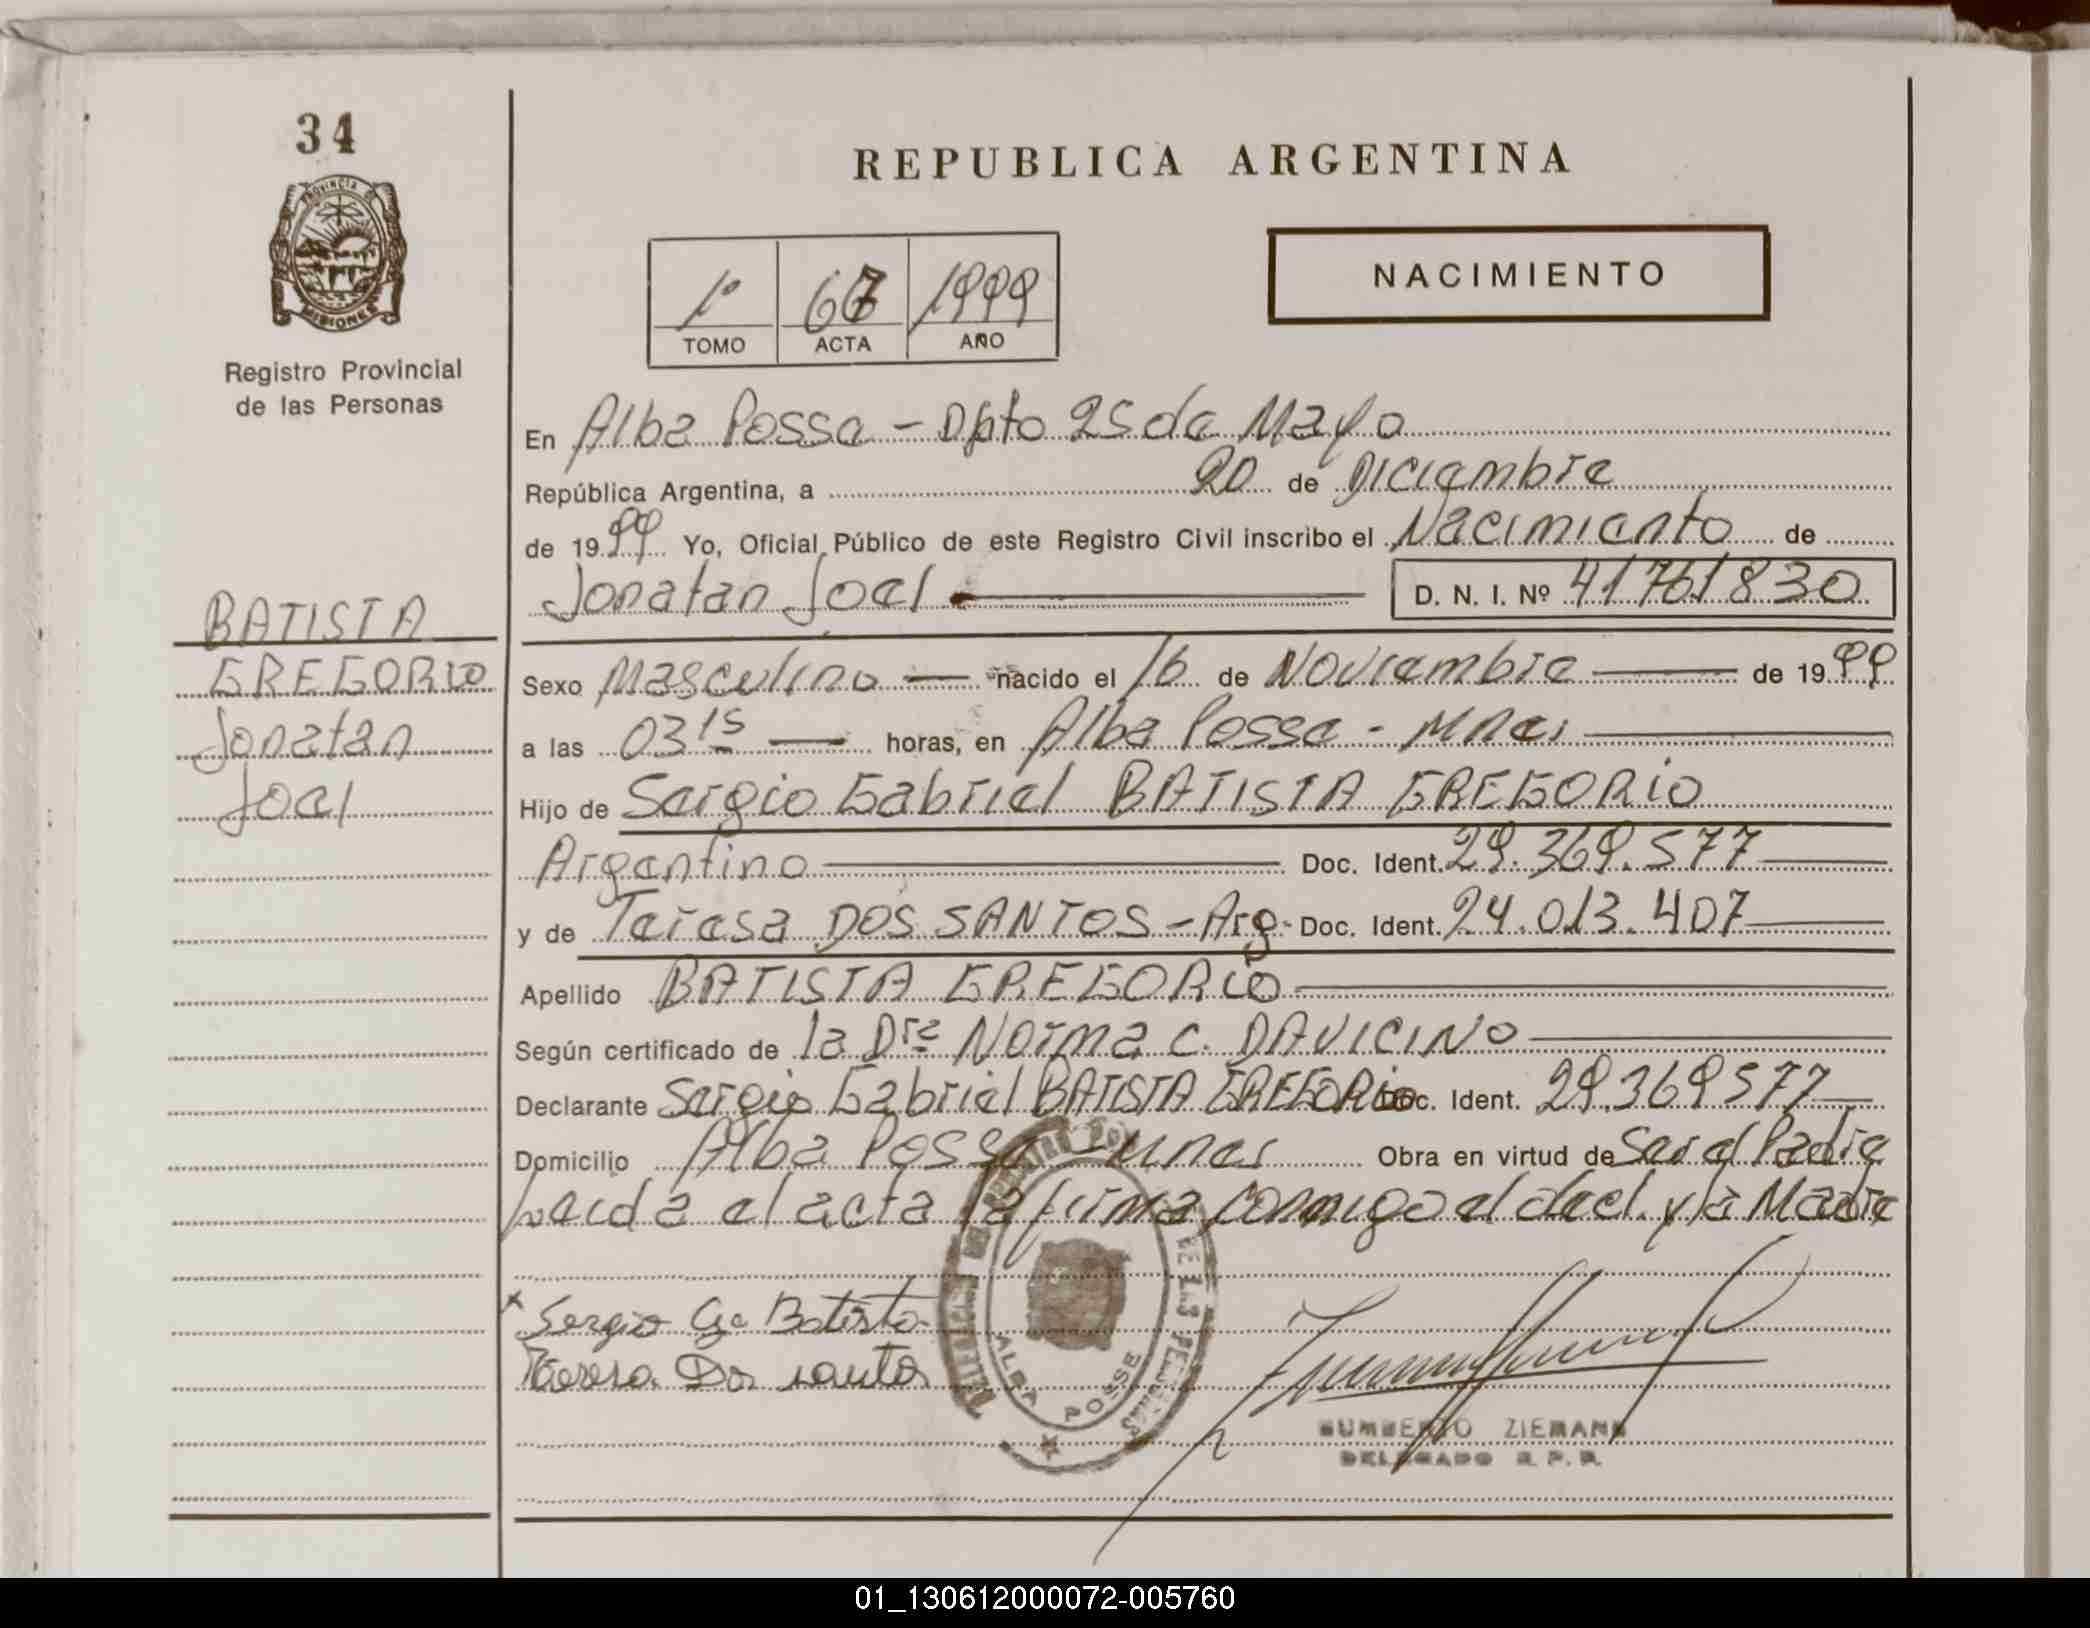 34
PROVINCIA DE
MISIONES
Registro Provincial
de las Personas
BATISTA
GREGORIO
Jonatan
Joel
REPUBLICA ARGENTINA
1º 667 1999
TOMO ACTA AÑO
NACIMIENTO
En Alba Posse - Dpto 25 de Mayo
República Argentina, a 20 de Diciembre
de 1999 Yo, Oficial Público de este Registro Civil inscribo el Nacimiento de
Jonatan Joel D. N. I. Nº 41761830
Sexo Masculino nacido el 16 de Noviembre de 1999
a las 03 15 horas, en Alba Posse - Mnes
Hijo de Sergio Gabriel BATISTA GREGORIO
Argentino Doc. Ident. 29.369.577
y de Teresa DOS SANTOS - Arg- Doc. Ident. 24.013.407
Apellido BATISTA GREGORIO
Según certificado de la Dra Norma C. DAVICINO
Declarante Sergio Gabriel BATISTA GREGORIO Doc. Ident. 29.369577
Domicilio Alba Posse - Mnes Obra en virtud de Ser el Padre
Leida el acta la firma conmigo el decl. y la Madre
Sergio Ga Batista
Teresa Dos santos
ALBA POSSE
HUMBERTO ZIEMANN
DELEGADO R. P. P.
01_130612000072-005760